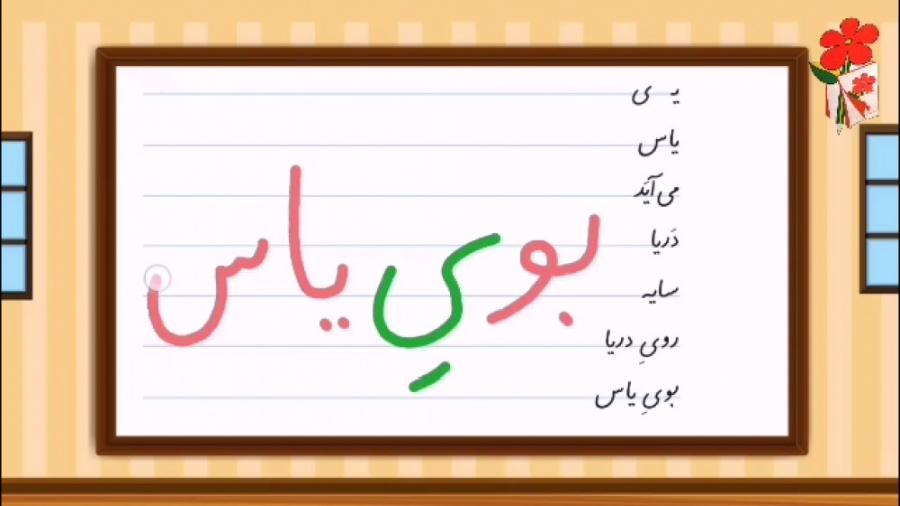 یـ ی
یاس
می‌آیَد
دَریا
سایه
رویِ دریا
بویِ یاس
بویِ یاس